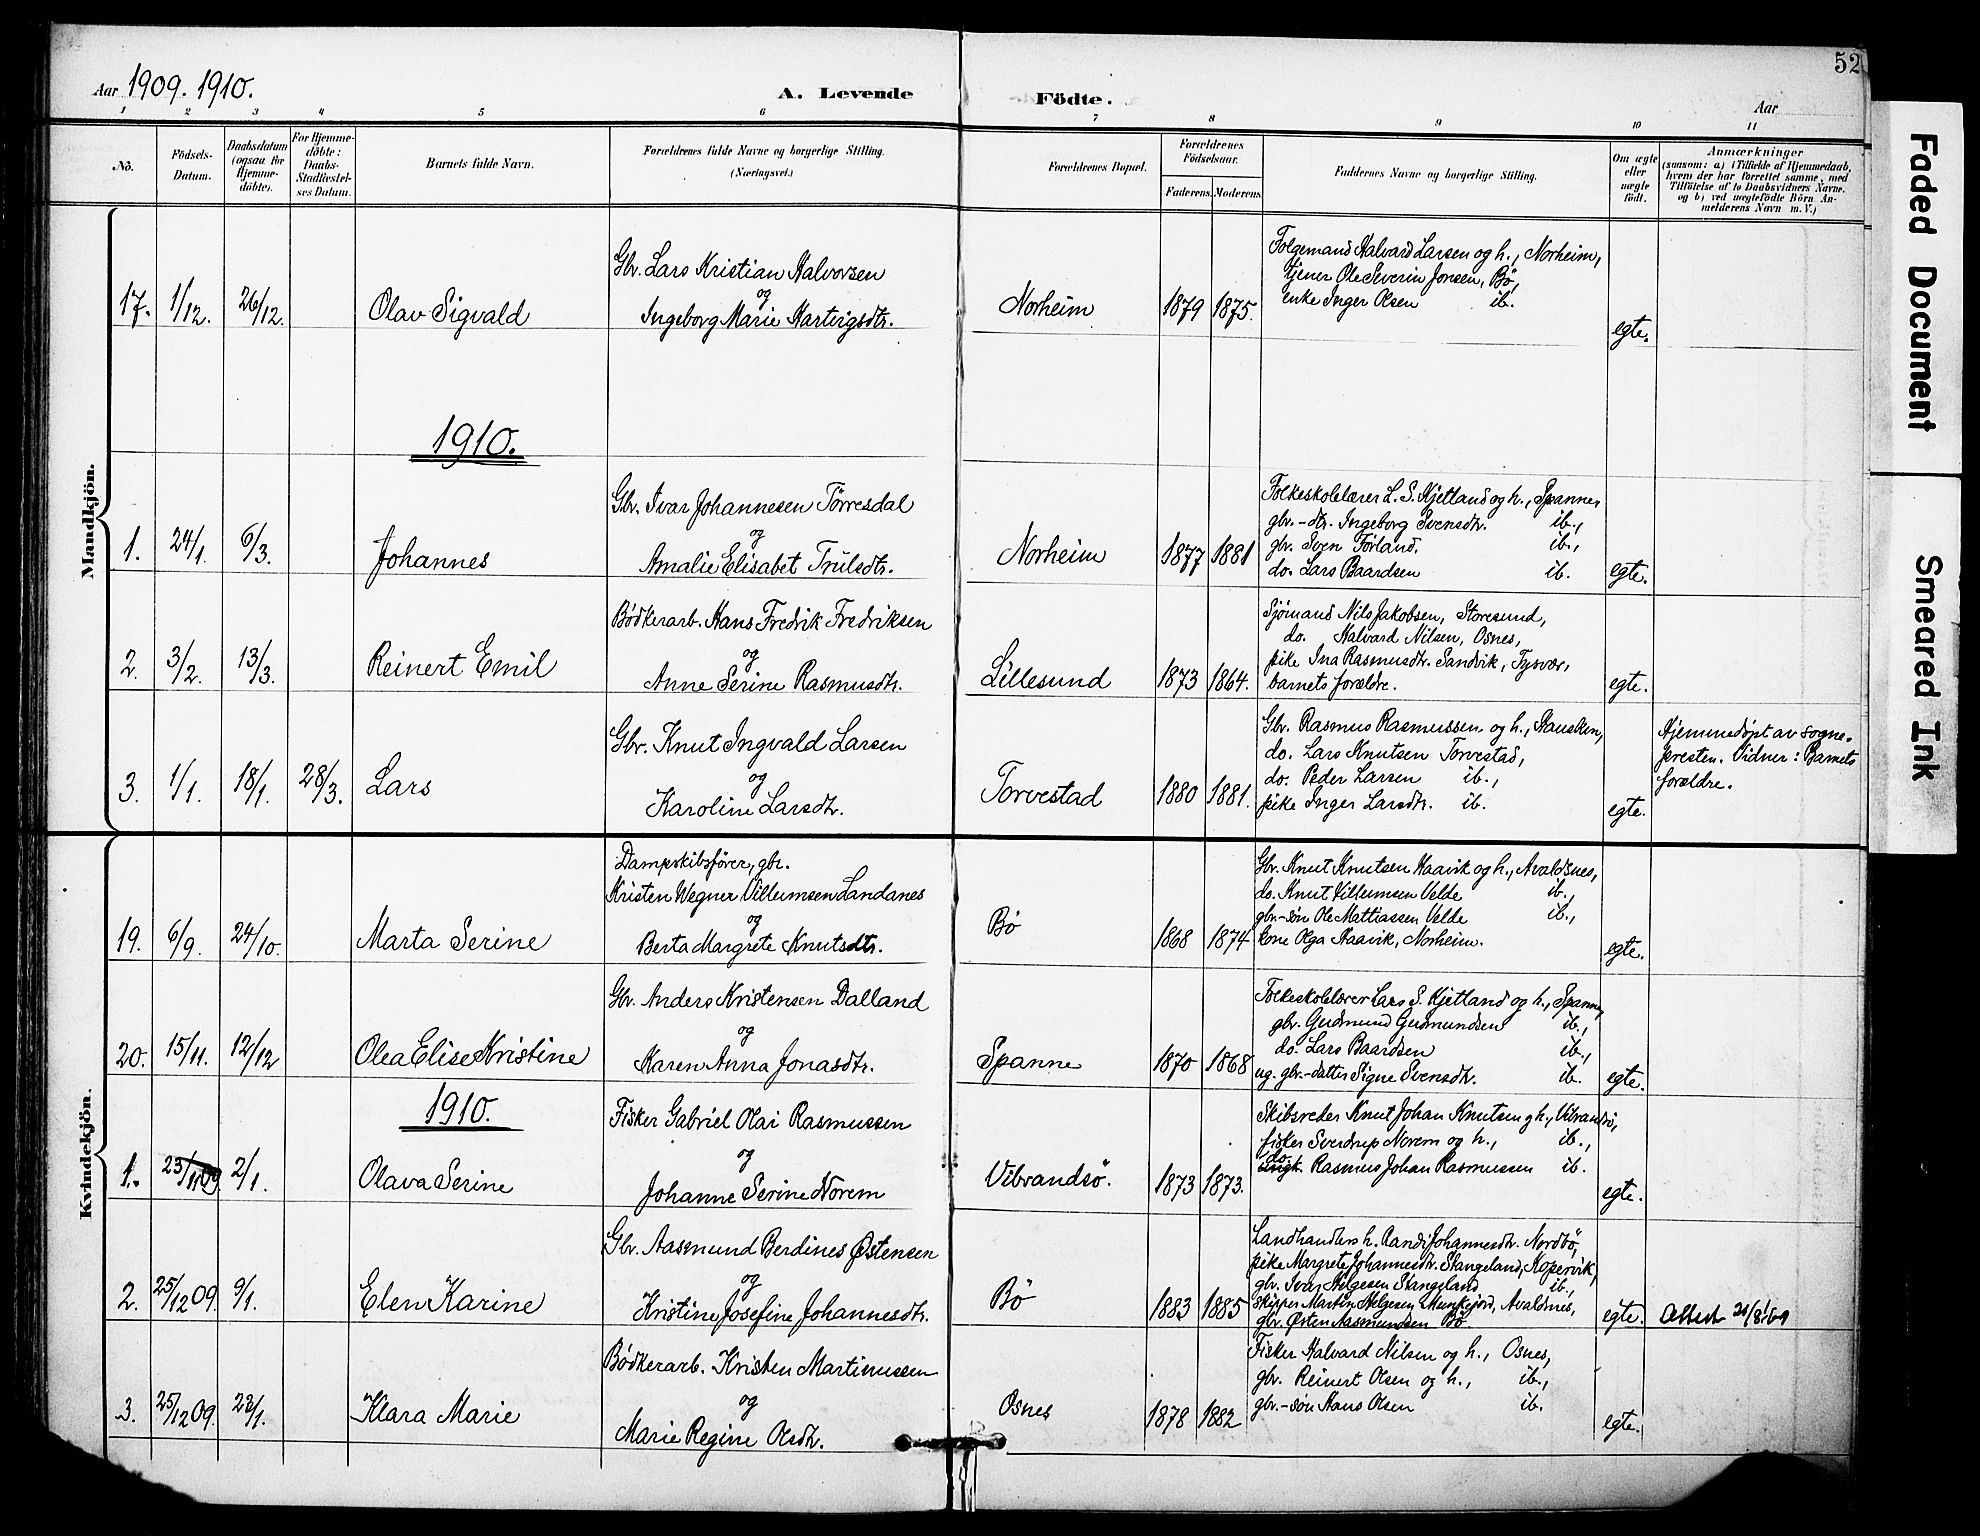 52
Aar 1909. 1910.
A. Levende Födte.
Aar
1 2 3 4 5 6 7 8 9 10 11
No.
Födsels-Datum.
Daabsdatum (ogsaa for Hjemme-döbte).
For Hjemme-döbte: Daabs-Stadfæstel-ses Datum.
Barnets fulde Navn.
Forældrenes fulde Navne og borgerlige Stilling.
(Næringsvei.)
Forældrenes Bopæl.
Forældrenes Födselsaar.
Faderens. Moderens.
Faddernes Navne og borgerlige Stilling.
Om ægte eller uægte födt.
Anmærkninger
(saasom: a) i Tilfælde af Hjemmedaab, hvem der har forrettet samme, med Tilföielse af to Daabsvidners Navne, og b) ved uægtefödte Börn An-melderens Navn m. V.)
Mandkjön.
17. 1/12. 26/12. Olav Sigvald
Gbr. Lars Kristian Halvorsen
og
Ingeborg Marie Hartvigsdtr.
Norheim 1879 1875.
Folgemand Halvard Larsen og h., Norheim,
tjener Ole Severin Jonsen, Bö,
enke Inger Olsen ib.
egte.
1910.
1. 24/1. 6/3. Johannes
Gbr. Ivar Johannesen Törresdal
og
Amalie Elisabet Trulsdtr.
Norheim 1877 1881
Folkeskolelærer L. S. Kjetland og h., Spanne,
gbr.-dtr. Ingeborg Svensdtr. ib.,
gbr. Sven Förland, ib.,
do. Lars Baardsen ib.
egte.
2. 3/2. 13/3. Reinert Emil
Bödkerarb. Hans Fredrik Fredriksen
og
Anne Serine Rasmusdtr.
Lillesund 1873 1864.
Sjömand Nils Jakobsen, Storesund,
do. Halvard Nilsen, Osnes,
pike Ina Rasmusdtr. Sandvik, Tysvær,
barnets forældre.
egte.
3. 1/1. 18/1. 28/3. Lars
Gbr. Knut Ingvald Larsen
og
Karoline Larsdtr.
Torvestad 1880 1881.
Gbr. Rasmus Rasmussen og h.,
do. Lars Knutsen Torvestad,
do. Peder Larsen ib.,
pike Inger Larsdtr. ib.
egte.
Hjemmedöpt av sogne-
presten. Vidner: Barnets
forældre.
Kvindekjön.
19. 6/9. 24/10. Marta Serine
Dampskibsförer, gbr.
Kristen Wegner Villumsen Landanes
og
Berta Margrete Knutsdtr.
Bö 1868 1874
Gbr. Knut Knutsen Haavik og h., Avaldsnes,
do. Knut Villumsen Velde ib.,
gbr.-sön Ole Mattiassen Velde ib.,
kone Olga Haavik, Norheim.
egte.
20. 15/11. 12/12 Olea Elise Kristine
Gbr. Anders Kristensen Dalland
og
Karen Anna Jonasdtr.
Spanne 1870 1868
Folkeskolelærer Lars S. Kjetland og h., Spanne,
gbr. Gudmund Gudmundsen ib.,
do. Lars Baardsen ib.,
ug. gbr.-datter Signe Svensdtr. ib.
egte.
1910.
1. 23/11 09. 2/1. Olava Serine
Fisker Gabriel Olai Rasmussen
og
Johanne Serine Norem
Vibrandsö. 1873 1873.
Skibsreder Knut Johan Knutsen og h., Vibrandsö,
fisker Sverdrup Norem og h., ib.,
do. ungk. Rasmus Johan Rasmussen ib.
egte.
2. 25/12 09. 9/1. Elen Karine
Gbr. Aasmund Berdines Østensen
og
Kristine Josefine Johannesdtr.
Bö 1883 1885
Landhandlers h. Randi Johannesdtr. Nordbö,
pike Margrete Johannesdtr. Stangeland, Kopervik,
gbr. Ivar Helgesen Stangeland ib.,
skipper Martin Helgesen Munkejord, Avaldsnes,
gbr. Østen Aasmundsen Bö.
egte.
Attest 21/8 '69
3. 25/12 09. 23/1. Klara Marie
Bödkerarb. Kristen Martinussen
og
Marie Regine Olsdtr.
Osnes 1878 1882
Fisker Halvard Nilsen og h., Osnes,
gbr. Reinert Olsen og h., ib.,
gbr.-sön Hans Olsen ib.
egte.
Faded Document
Smeared Ink